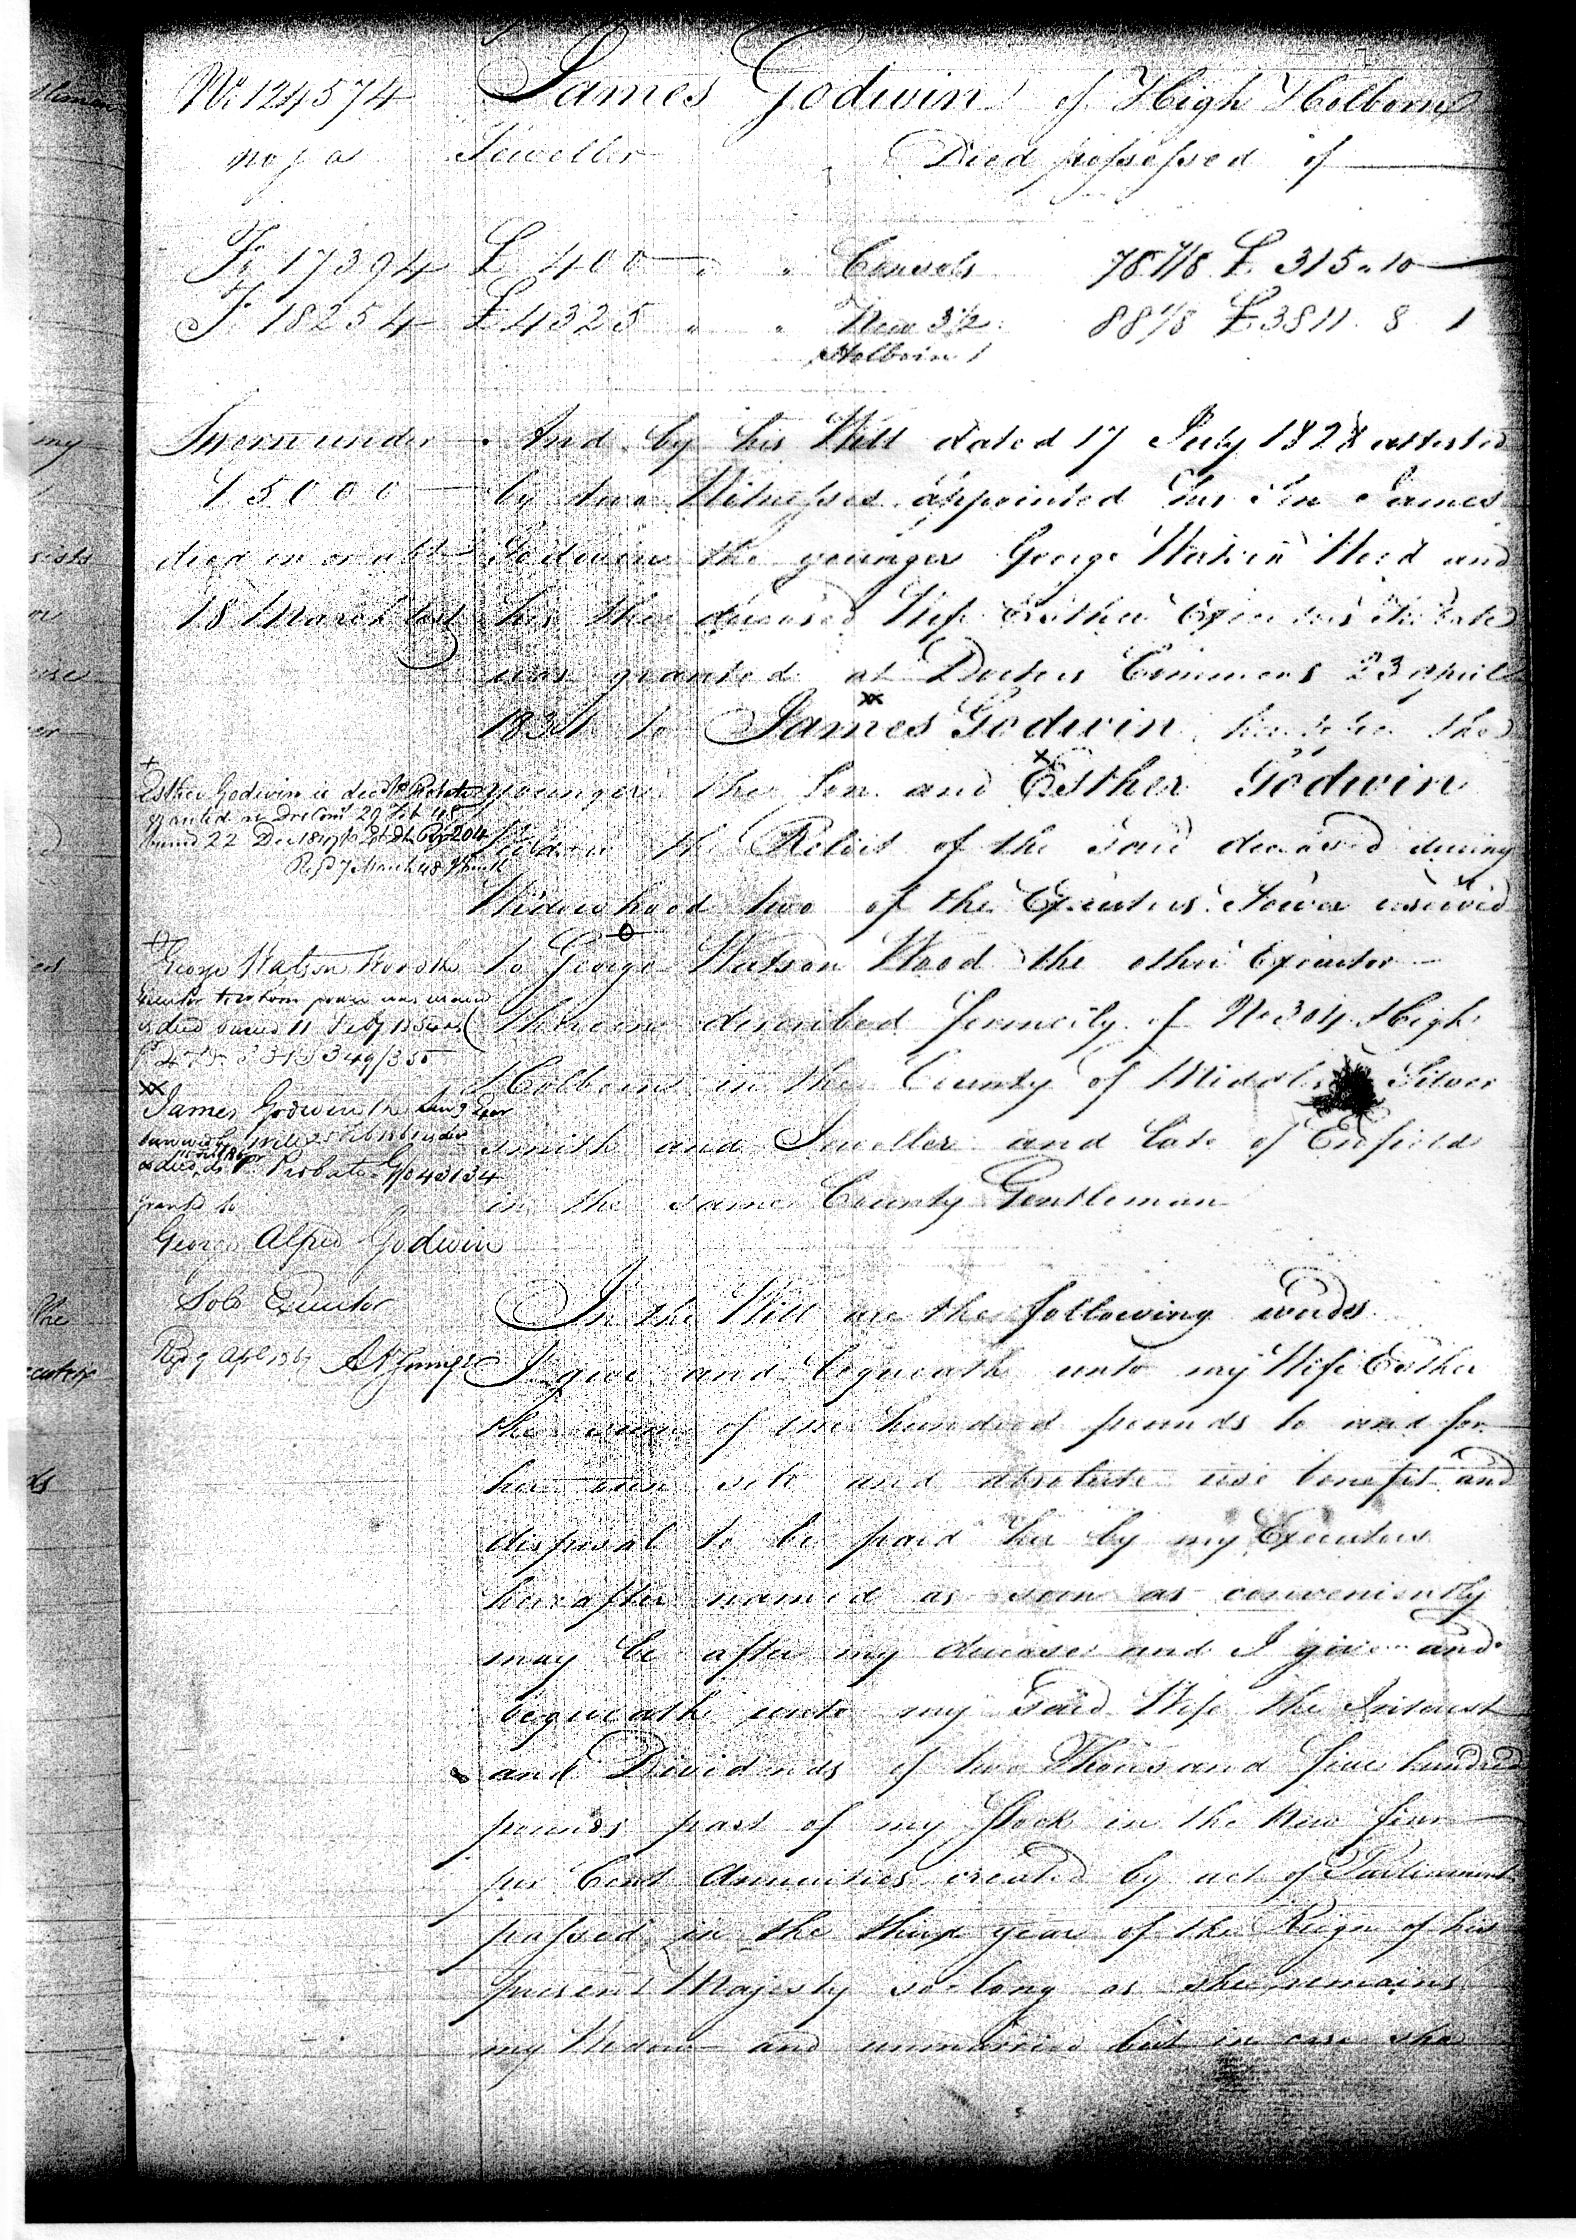 No 124574 James Godwin of High Holborn
Jeweller Died possessed of
F. 17394 £ 400 Consols 78 7/8 £ 315 " 10
F. 18254 £ 4325 New 3½ 88 1/8 £ 3811 8 1
Holborn 1
Sworn under
£5000
died on or abt
18 March last
And by his Will dated 17 July 1828 attested
by two Witnesses appointed his Son James
Godwin the younger George Watson Wood and
his then deceased Wife Esther Executors Probate
was granted at Doctors Commons 23 April
1834 to James Godwin the
younger the Son and Esther Godwin
Widow the Relict of the said deceased during
Widowhood two of the Executors Power reserved
to George Watson Wood the other Executor
therein described formerly of No 304 High
Holborn in the County of Middlx Silver
smith and Jeweller and late of Enfield
in the same County Gentleman
Esther Godwin is decd Probate
granted at Drs Com 29 Feb 48
buried 22 Dec 1847 204
Regd 7 March 48
George Watson Wood the
Executor to whom power was reserved
is died buried 11 Feby
349/350
James Godwin the Son & Exor
is died Probate 43134
grantd to
George Alfred Godwin
Sole Executor
Regd 9 Apl
In the Will are the following words
I give and bequeath unto my Wife Esther
the sum of one hundred pounds to and for
her own sole and absolute use benefit and
disposal to be paid her by my Executors
hereafter named as soon as conveniently
may be after my decease and I give and
bequeath unto my said Wife the Interest
and Dividends of two Thousand five hundred
pounds part of my Stock in the New four
per Cent Annuities created by act of Parliament
passed in the third year of the Reign of his
present Majesty so long as she remains
my Widow and unmarried but in case she